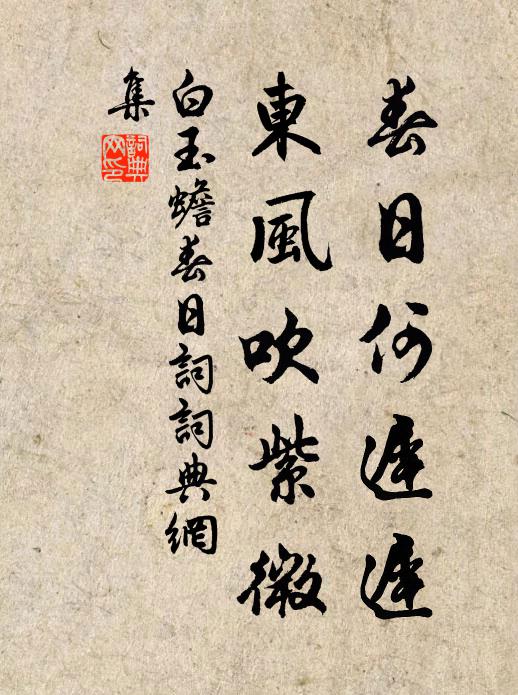 春日何遲遲
東風吹紫微
白玉蟾春日詞詞典網
集
詞典網印